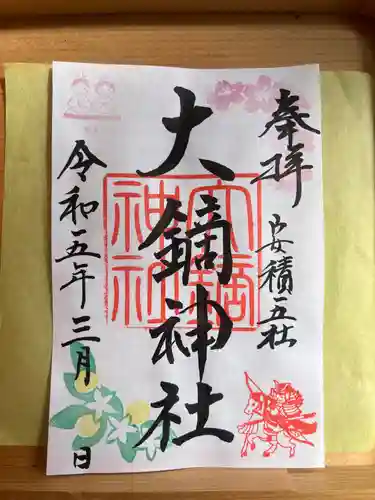 奉拝
安積五社
大鏑神社
大鏑
神社
令和五年三月
日